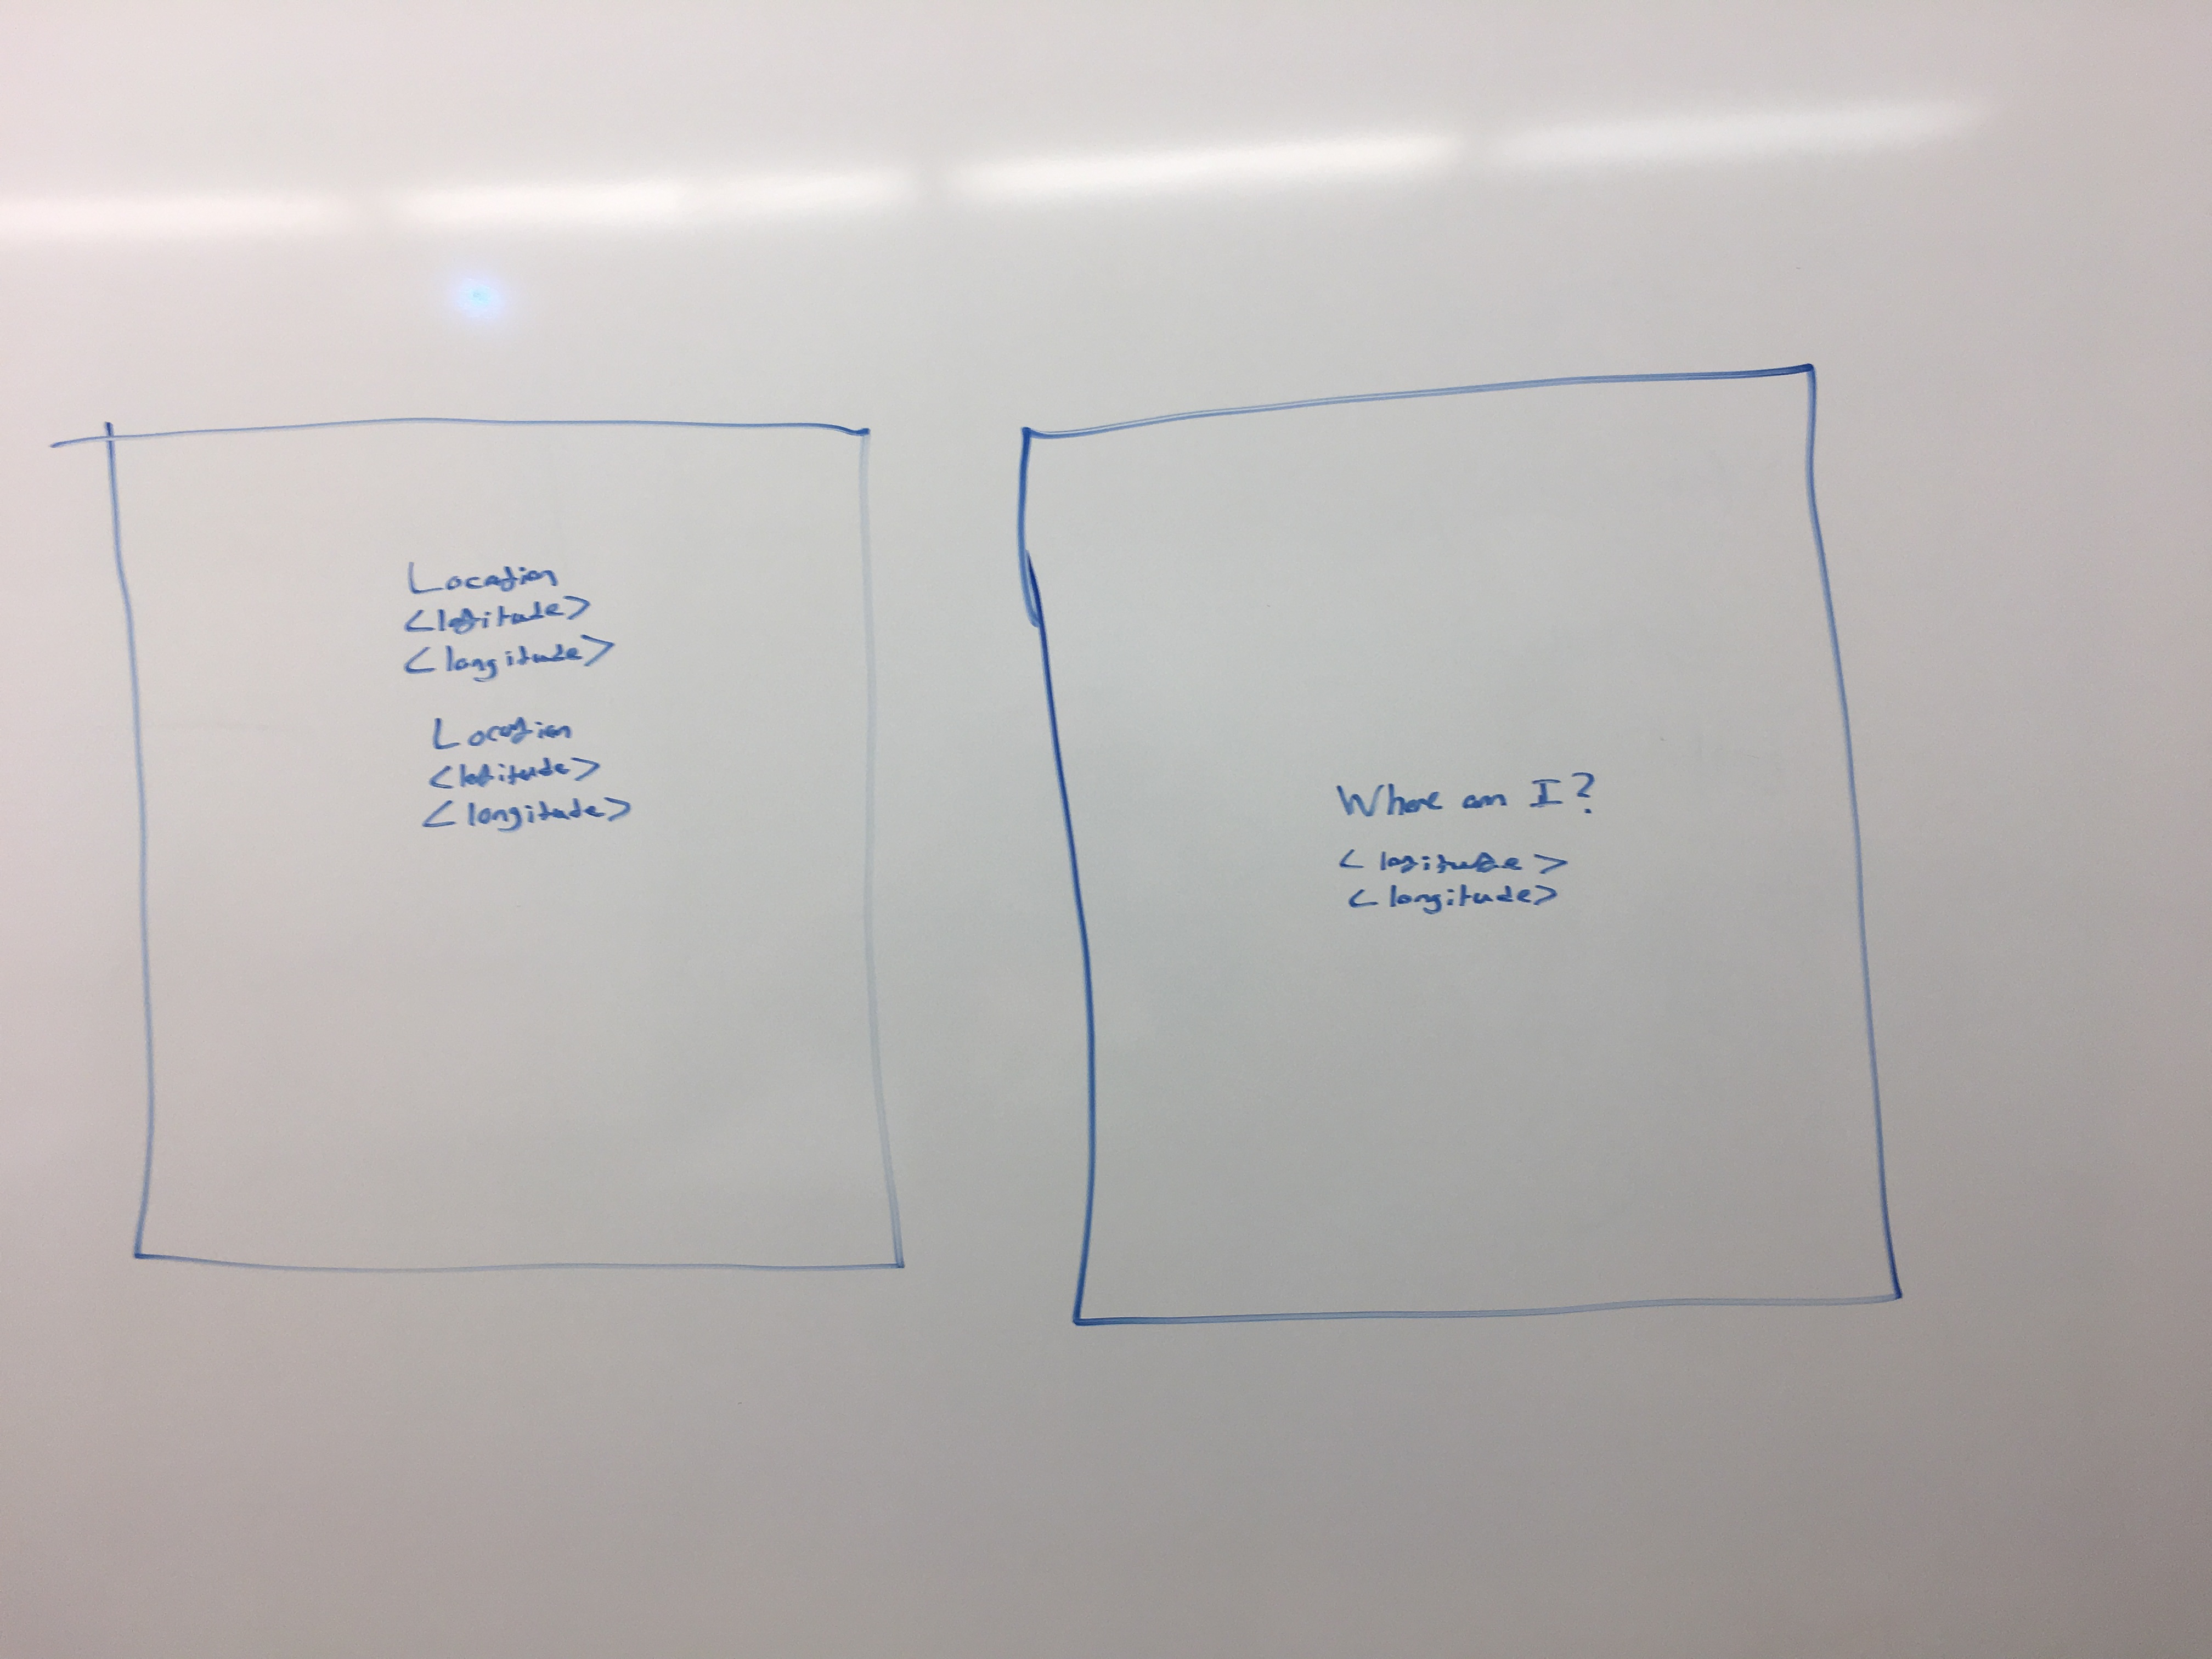 Location
<latitude>
<longitude>
Location
<latitude>
<longitude>
Where am I?
<latitude>
<longitude>